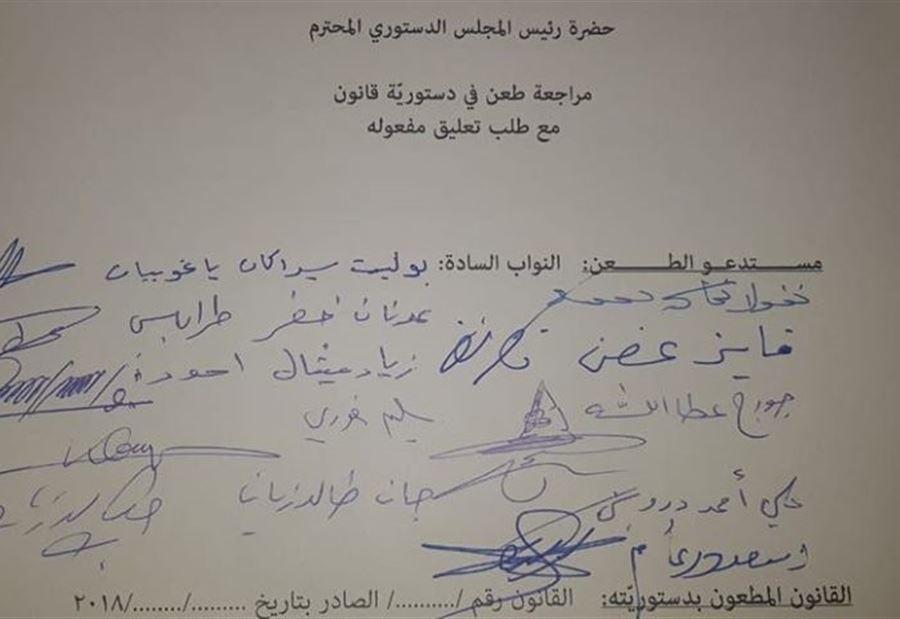 حضرة رئيس المجلس الدستوري المحترم
مراجعة طعن في دستوريّة قانون
مع طلب تعليق مفعوله
مستدعو الطعن: النواب السادة: بوليت سيراكان ياغوبيان
نقولا نحاس
عدنان خضر طرابلسي
فايز غصن
زياد ميشال اسود
جورج عطاالله
سليم خوري
جان طالوزيان
القانون المطعون بدستوريّته: القانون رقم /........../ الصادر بتاريخ ........./......../٢٠١٨